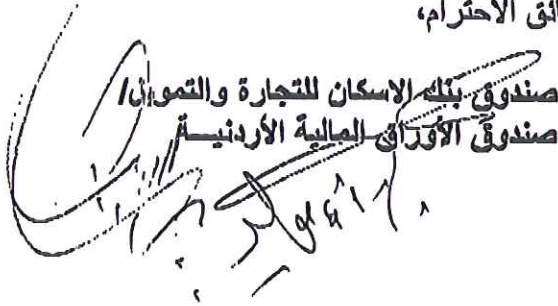 ائق الاحترام،
صندوق بنك الاسكان للتجارة والتمويل/
صندوق الأوراق المالية الأردنيــة